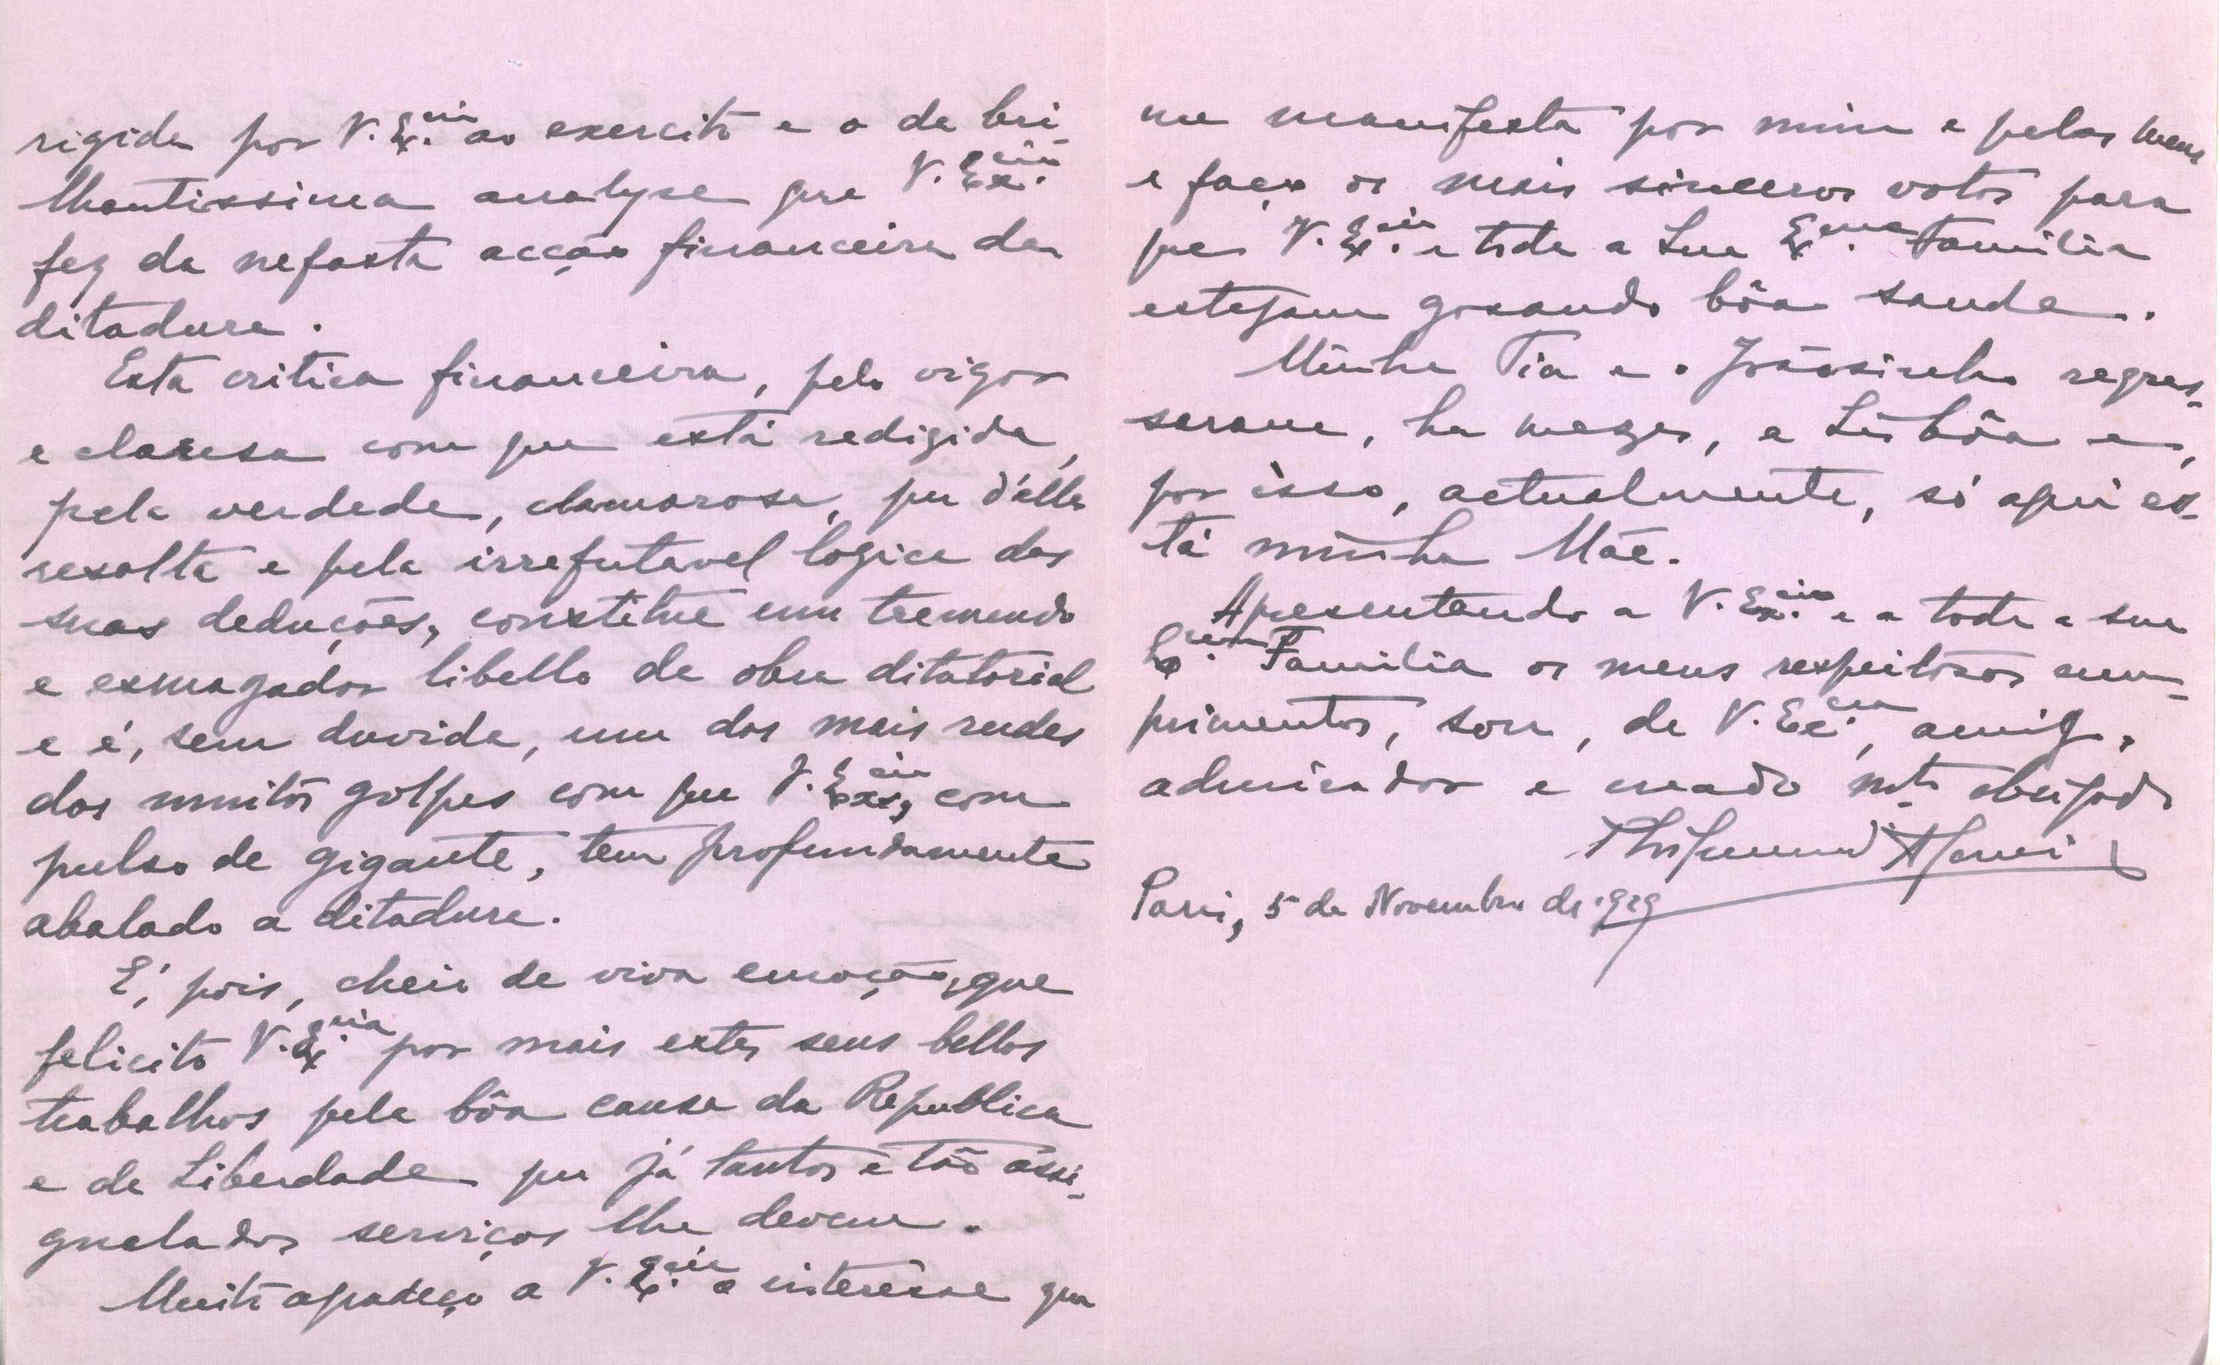 rigida por V. Ex.cia ao exercito e o da bri-
lhantissima analyse que V. Ex.cia
fez da nefasta acção financeira da
ditadura.
Esta critica financeira, pelo vigor
e claresa com que está redigida,
pela verdade, clamorosa, que d'ella
resalta e pela irrefutavel logica das
suas deduções, constitue um tremendo
e esmagador libello da obra ditatorial
e é, sem duvida, um dos mais rudes
dos muitos golpes com que V. Ex.cia, com
pulso de gigante, tem profundamente
abalado a ditadura.
É, pois, cheio de viva emoção, que
felicito V. Ex.cia por mais estes seus bellos
trabalhos pela bôa causa da Republica
e da Liberdade que já tantos e tão assi-
gnalados serviços lhe devem.
Muito agradeço a V. Ex.cia o interêsse que
me manifesta por mim e pelos meus
e faço os mais sinceros votos para
que V. Ex.cia e toda a Sua Ex.ma Familia
estejam gosando bôa saude.
Minha Tia e o Joãosinho regres-
saram, ha mezes, a Lisbôa e,
por isso, actualmente, só aqui es-
tá minha Mãe.
Apresentando a V. Ex.cia e a toda a sua
Ex.ma Familia os meus respeitosos cum-
primentos, sou, de V. Ex.cia, amigo,
admirador e creado mto obrigado
Paris, 5 de Novembro de 1929